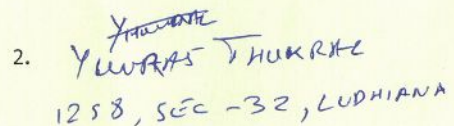 2. YUVRAJ THUKRAL
1258, SEC-32, LUDHIANA